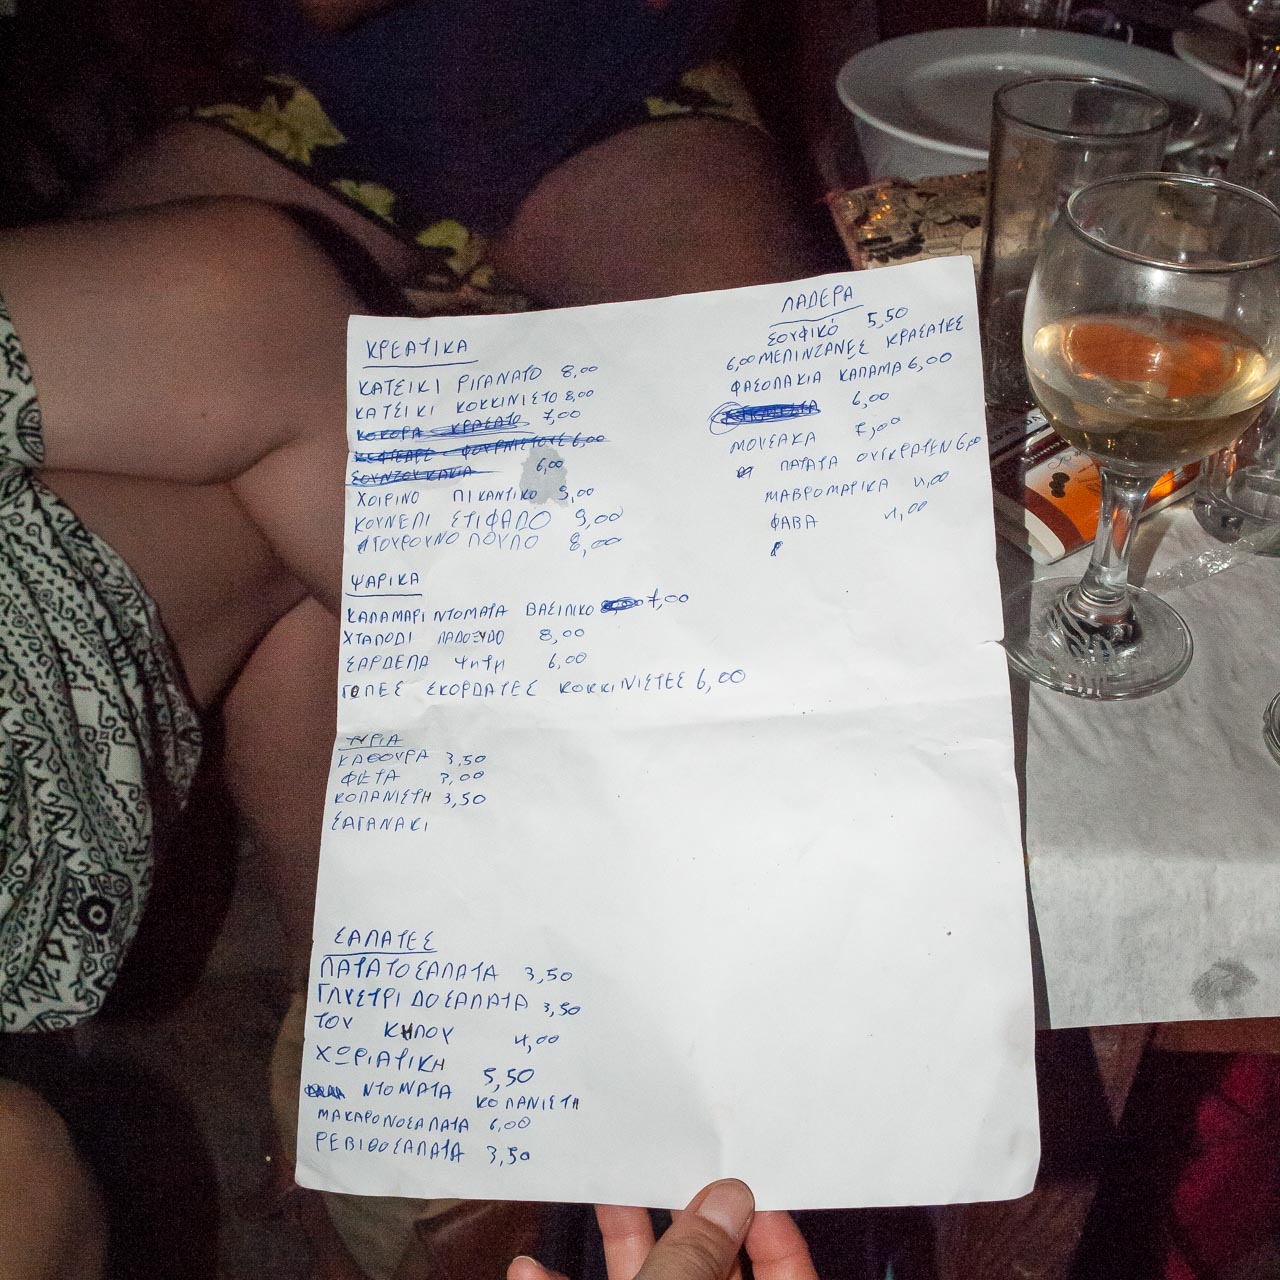 ΚΡΕΑΤΙΚΑ
ΚΑΤΣΙΚΙ ΡΙΓΑΝΑΤΟ 8,00
ΚΑΤΣΙΚΙ ΚΟΚΚΙΝΙΣΤΟ 8,00
ΚΟΚΟΡΑ ΚΡΑΣΑΤΟ 7,00
ΚΕΦΤΕΔΕΣ 6,00
ΣΟΥΝΖΟΥΚΑΚΙΑ 6,00
ΧΟΙΡΙΝΟ ΠΙΚΑΝΤΙΚΟ 9,00
ΚΟΥΝΕΛΙ ΣΤΙΦΑΔΟ 9,00
ΓΟΥΡΟΥΝΟΠΟΥΛΟ 8,00
ΨΑΡΙΚΑ
ΚΑΛΑΜΑΡΙ ΝΤΟΜΑΤΑ ΒΑΣΙΛΙΚΟ 7,00
ΧΤΑΠΟΔΙ ΛΑΔΟΞΥΔΟ 8,00
ΣΑΡΔΕΛΑ ΨΗΤΗ 6,00
ΓΟΠΕΣ ΣΚΟΡΔΑΤΕΣ ΚΟΚΚΙΝΙΣΤΕΣ 6,00
ΤΥΡΙΑ
ΚΑΘΟΥΡΑ 3,50
ΦΕΤΑ 3,00
ΚΟΠΑΝΙΣΤΗ 3,50
ΣΑΓΑΝΑΚΙ
ΣΑΛΑΤΕΣ
ΠΑΤΑΤΟΣΑΛΑΤΑ 3,50
ΓΛΥΣΤΡΙΔΟΣΑΛΑΤΑ 3,50
ΤΟΥ ΚΗΠΟΥ 4,00
ΧΩΡΙΑΤΙΚΗ 5,50
ΝΤΟΜΑΤΑ ΚΟΠΑΝΙΣΤΗ
ΜΑΚΑΡΟΝΟΣΑΛΑΤΑ 6,00
ΡΕΒΙΘΟΣΑΛΑΤΑ 3,50
ΛΑΔΕΡΑ
ΣΟΥΦΙΚΟ 5,50
6,00 ΜΕΛΙΝΖΑΝΕΣ ΚΡΑΣΑΤΕΣ
ΦΑΣΟΛΑΚΙΑ ΚΑΛΑΜΑ 6,00
6,00
ΜΟΥΣΑΚΑ 7,00
ΠΑΤΑΤΑ ΟΥΓΚΡΑΤΕΝ 6,00
ΜΑΒΡΟΜΑΡΙΚΑ 4,00
ΦΑΒΑ 4,00